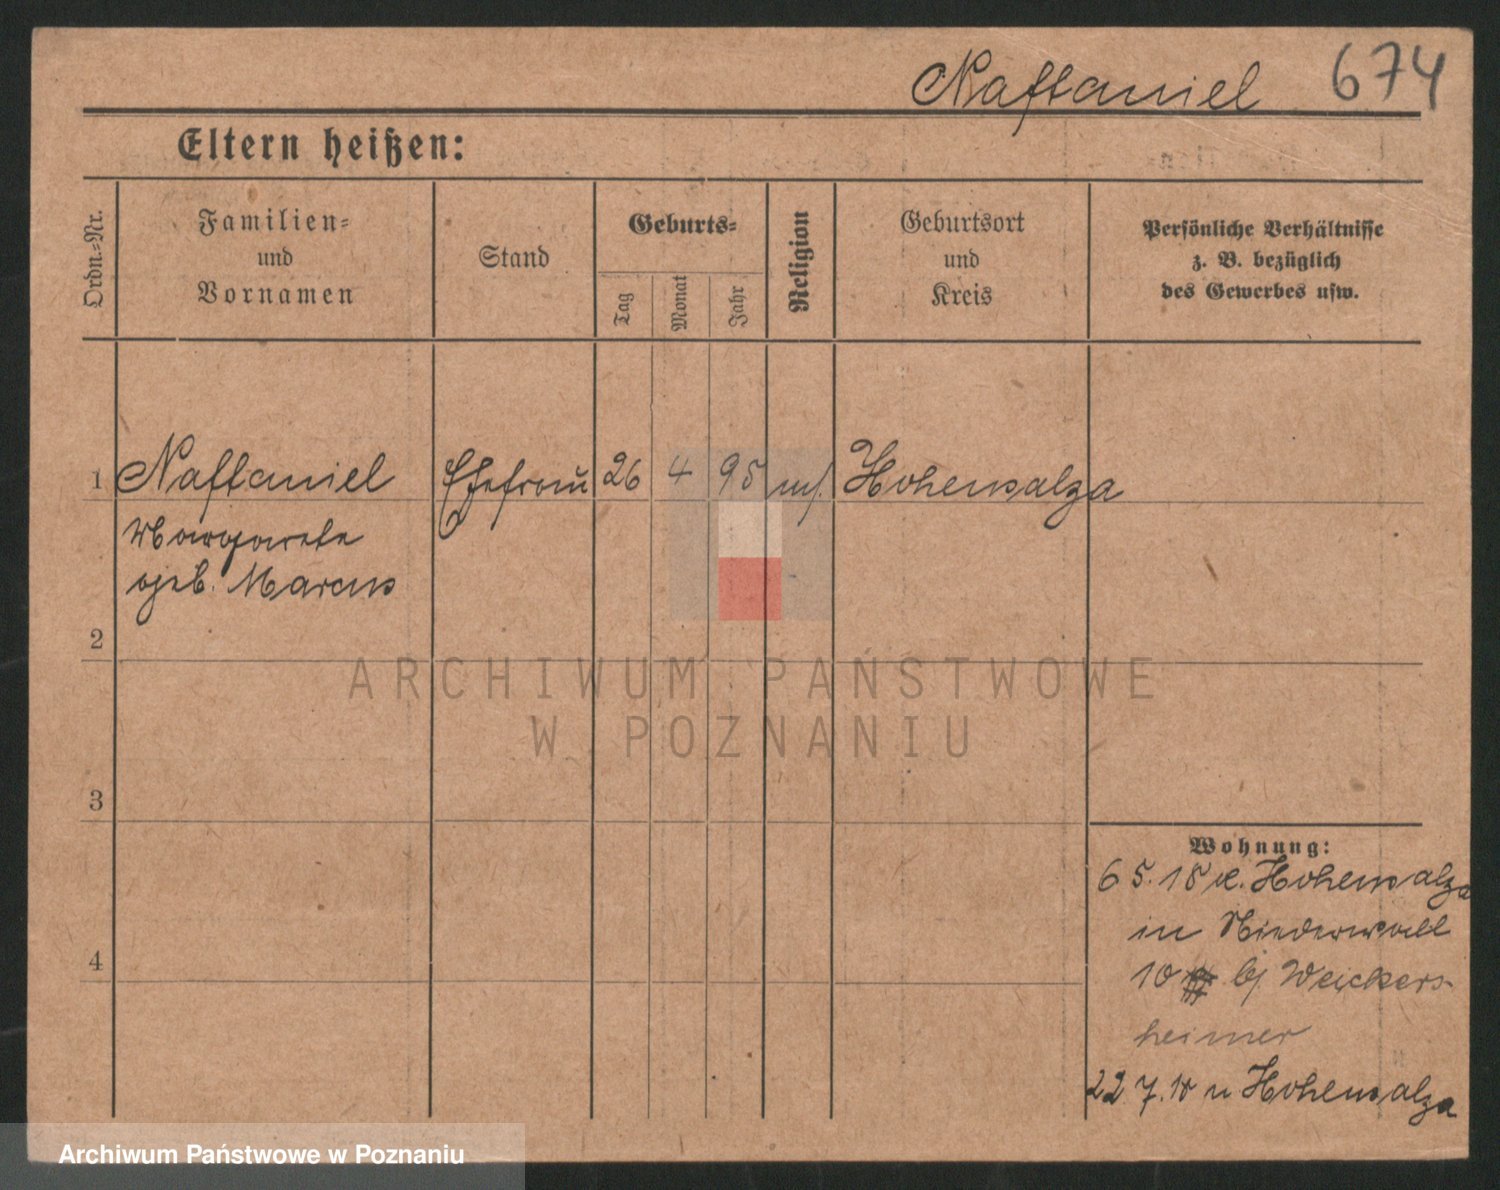 Naftaniel 674
Eltern heißen:
Ordn.-Nr.
Familien-
und
Vornamen
Stand
Geburts-
Tag
Monat
Jahr
Religion
Geburtsort
und
Kreis
Persönliche Verhältnisse
z. B. bezüglich
des Gewerbes usw.
1 Naftaniel Ehefrau 26 4 95 Hohensalza
Margarete
geb. Marcus
2
3
4
Wohnung:
6 5. 18 v. Hohensalza
in Niederwall
10 bj Weickers-
heimer
22 7. 18 n Hohensalza
ARCHIWUM PAŃSTWOWE
W POZNANIU
Archiwum Państwowe w Poznaniu